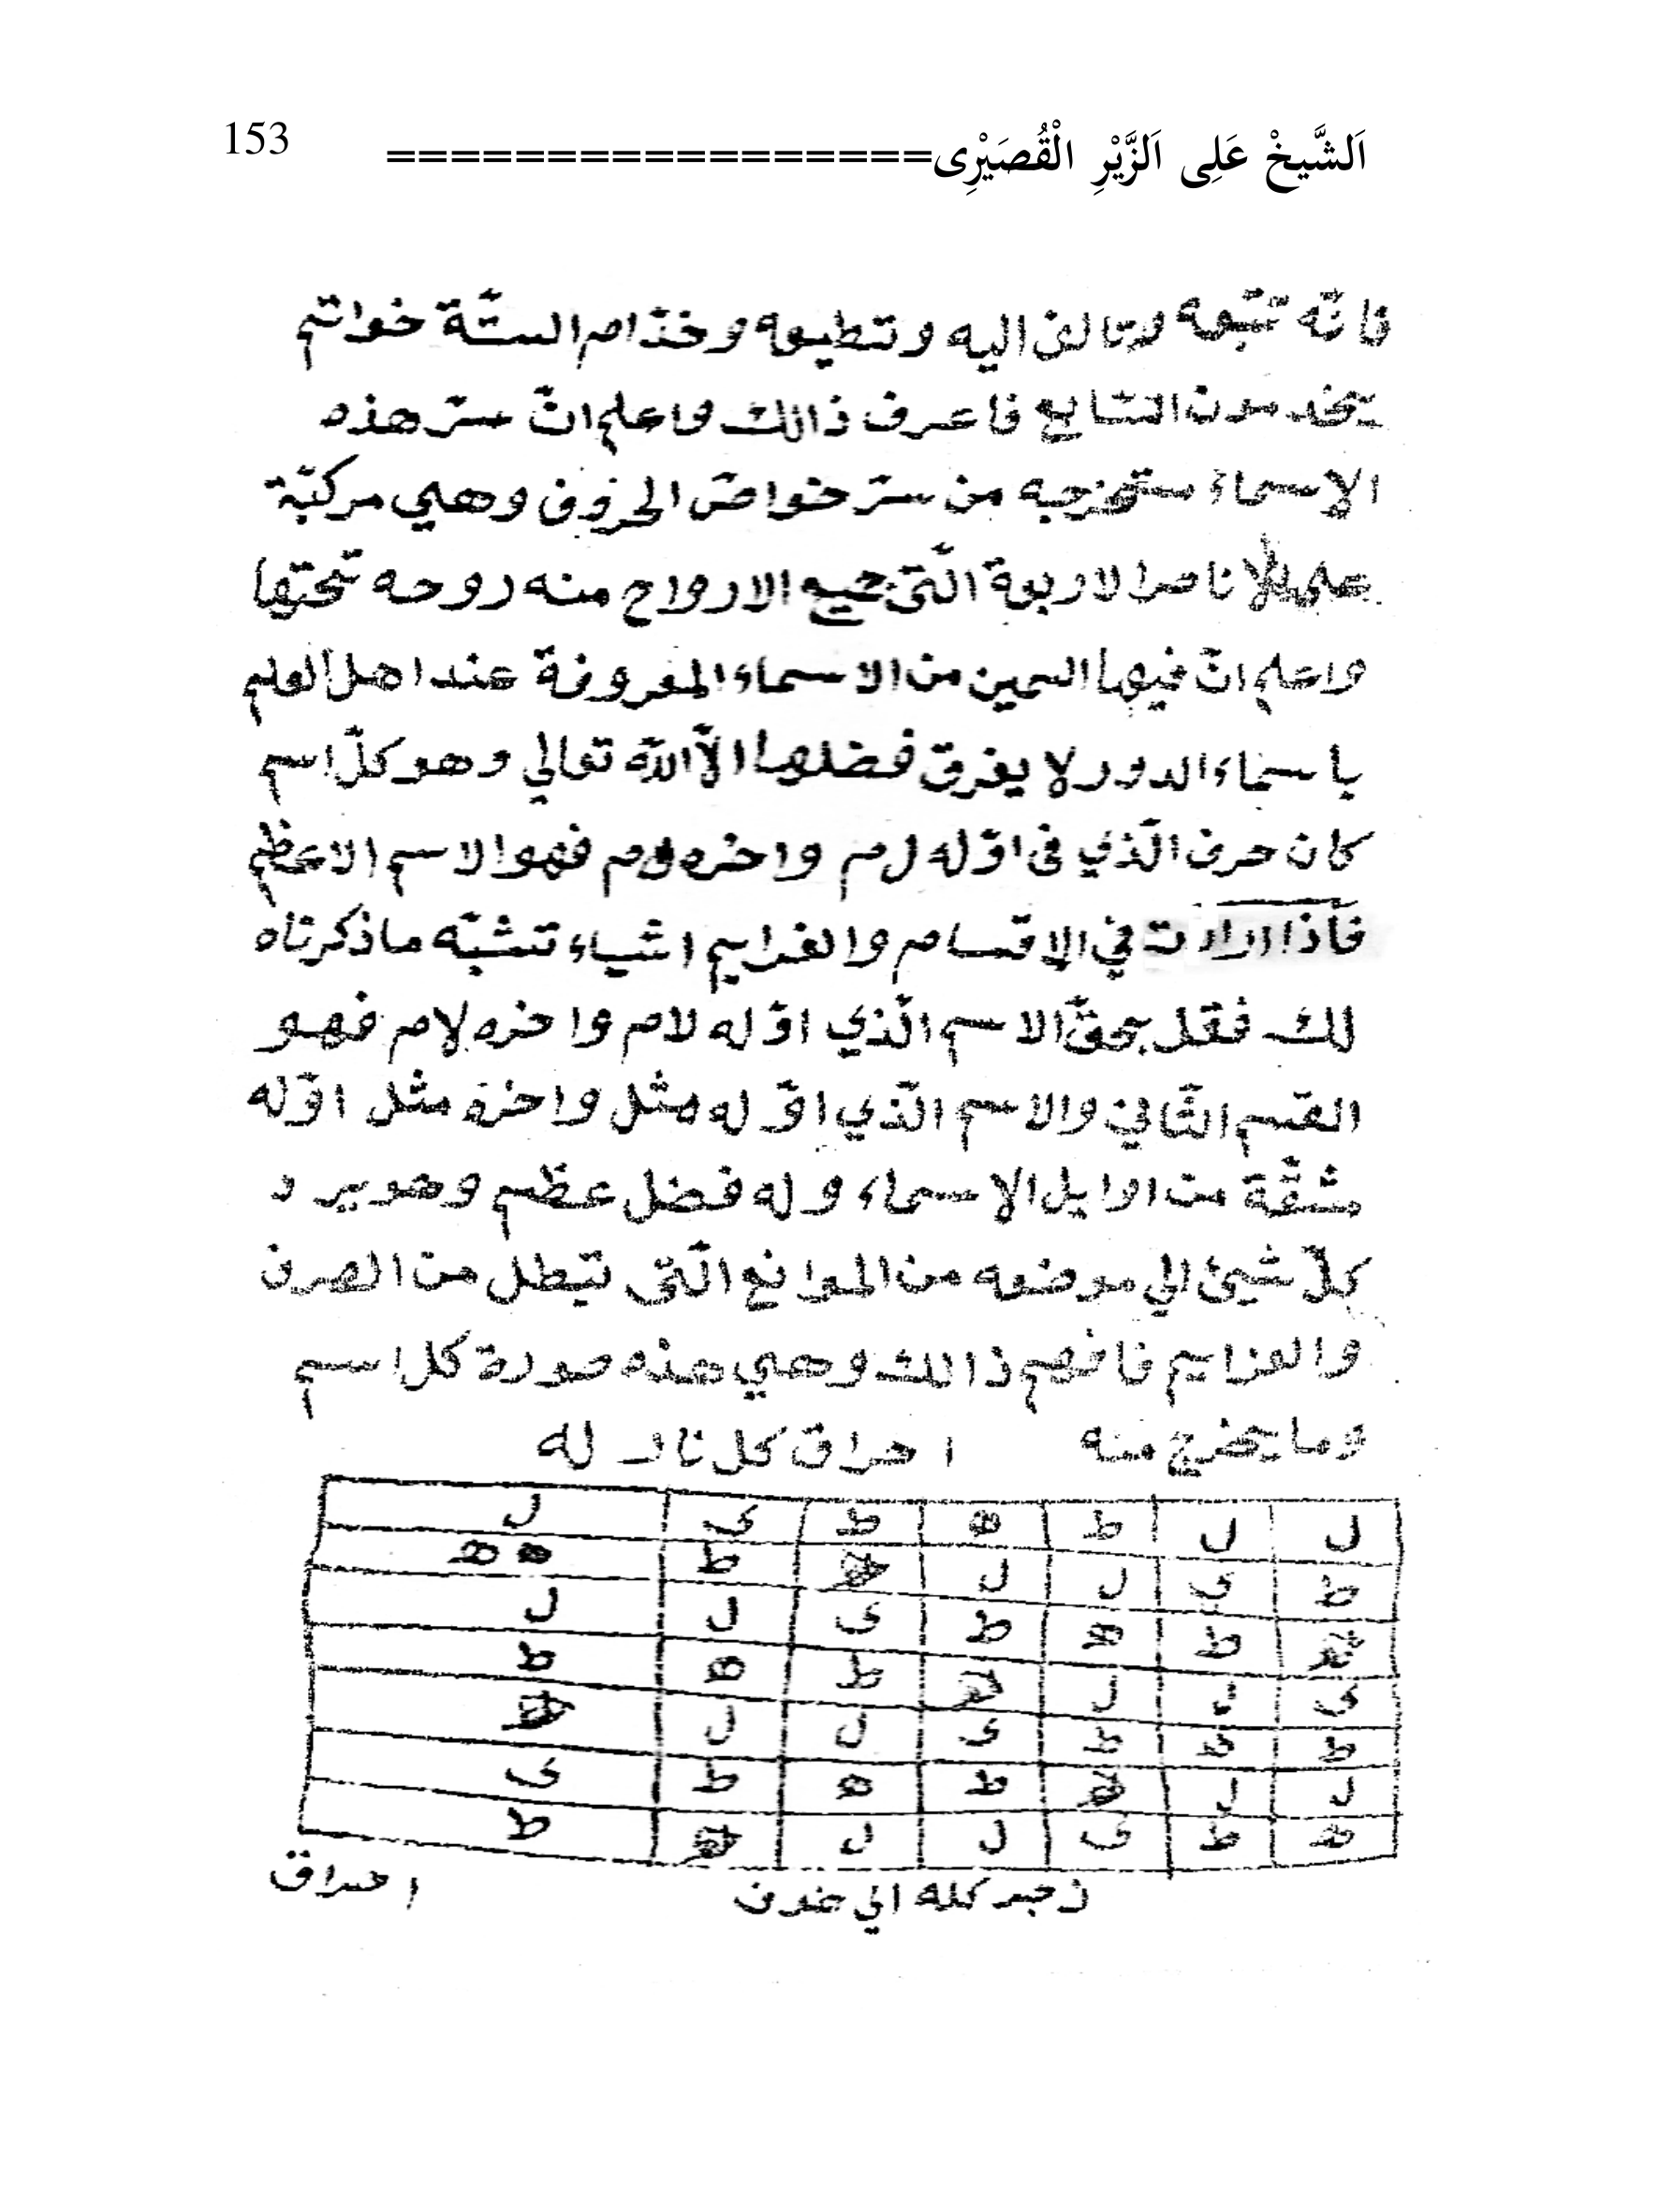 اَلشَّيخْ عَلِى اَلزَّيْرِ الْقُصَيْرِى================= 153
فانّه تتبعه وتالف اليه وتطيعه وخدّام الستّة خواتم
يخدمون السّابع فاعرف ذالك واعلم انّ سرّ هذه
الاسماء ستخرجه من سرّ خواصّ الحروف وهي مركبّة
الاربعة الّتى جميع الارواح منه روحه تحتها
واعلم انّ فيها اسمين من الاسماء المعروفة عند اهل العلم
باسماء الدور لا يفرق فضلها الاّ اللّه تعالي وهو كلّ اسم
كان حرف الّذي فى اوّله ل م واخره م فهو الاسم الاعظم
فأذا ارادت في الاقسام والعزايم اشياء تشبّه ما ذكرناه
لك فقل بحقّ الاسم الّذي اوّله لام واخره لام فهو
القسم الثّاني والاسم الّذي اوّله مثل واخره مثل اوّله
مشقّة من اوايل الاسماء وله فضل عظيم وهو يرد
كلّ شيئ الي موضعه من الموانع الّتى تبطل من الصرف
والعزايم فافهم ذالك وهي هذه صورة كل اسم
وما يخرج منه احراق كل نار له
ل ل ط ه ط ي ل
ط ي ل ل ه ط ه ه
ه ط ه ط ي ل ل
ي ل ل ه ط ه ط
ط ه ط ي ل ل ه
ل ل ه ط ه ط ي
ه ط ي ل ل ه ط
كله الي احراق